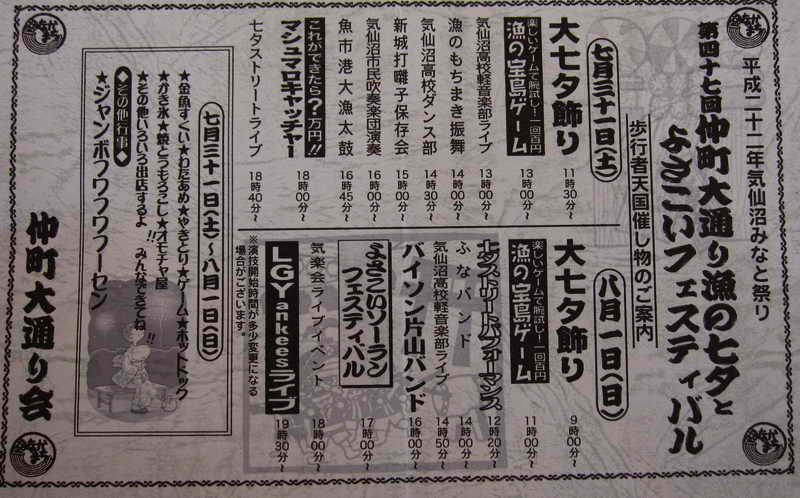 平成二十二年気仙沼みなと祭り
第四十七回仲町大通り漁の七夕と
よさこいフェスティバル
歩行者天国催し物のご案内
七月三十一日(土)
大七夕飾り 11時30分～
楽しいゲームで腕試し!一回百円
漁の宝島ゲーム 13時00分～
気仙沼高校軽音楽部ライブ 13時00分～
漁のもちまき振舞 14時00分～
気仙沼高校ダンス部 14時30分～
新城打囃子保存会 15時00分～
気仙沼市民吹奏楽団演奏 16時00分～
魚市港大漁太鼓 16時45分～
これができたら?万円!!
マシュマロキャッチャー 18時00分～
七夕ストリートライブ 18時40分～
八月一日(日)
大七夕飾り 9時00分～
楽しいゲームで腕試し!一回百円
漁の宝島ゲーム 11時00分～
七夕ストリートパフォーマンス 12時20分～
ふなバンド 14時00分～
気仙沼高校軽音楽部ライブ 14時50分～
バイソン片山バンド 16時00分～
よさこいソーラン
フェスティバル 17時00分～
気楽会ライブイベント 18時00分～
LGYankeesライブ 19時30分～
※演技開始時間が多少変更になる
場合がございます。
七月三十一日(土)～八月一日(日)
★金魚すくい★わたあめ★やきとり★ゲーム★ホットドック
★かき氷★焼とうもろこし★オモチャ屋
★その他いろいろ出店するよ!!みんなきてね!!
◆その他行事◆
★ジャンボフワフワフーセン
仲町大通り会